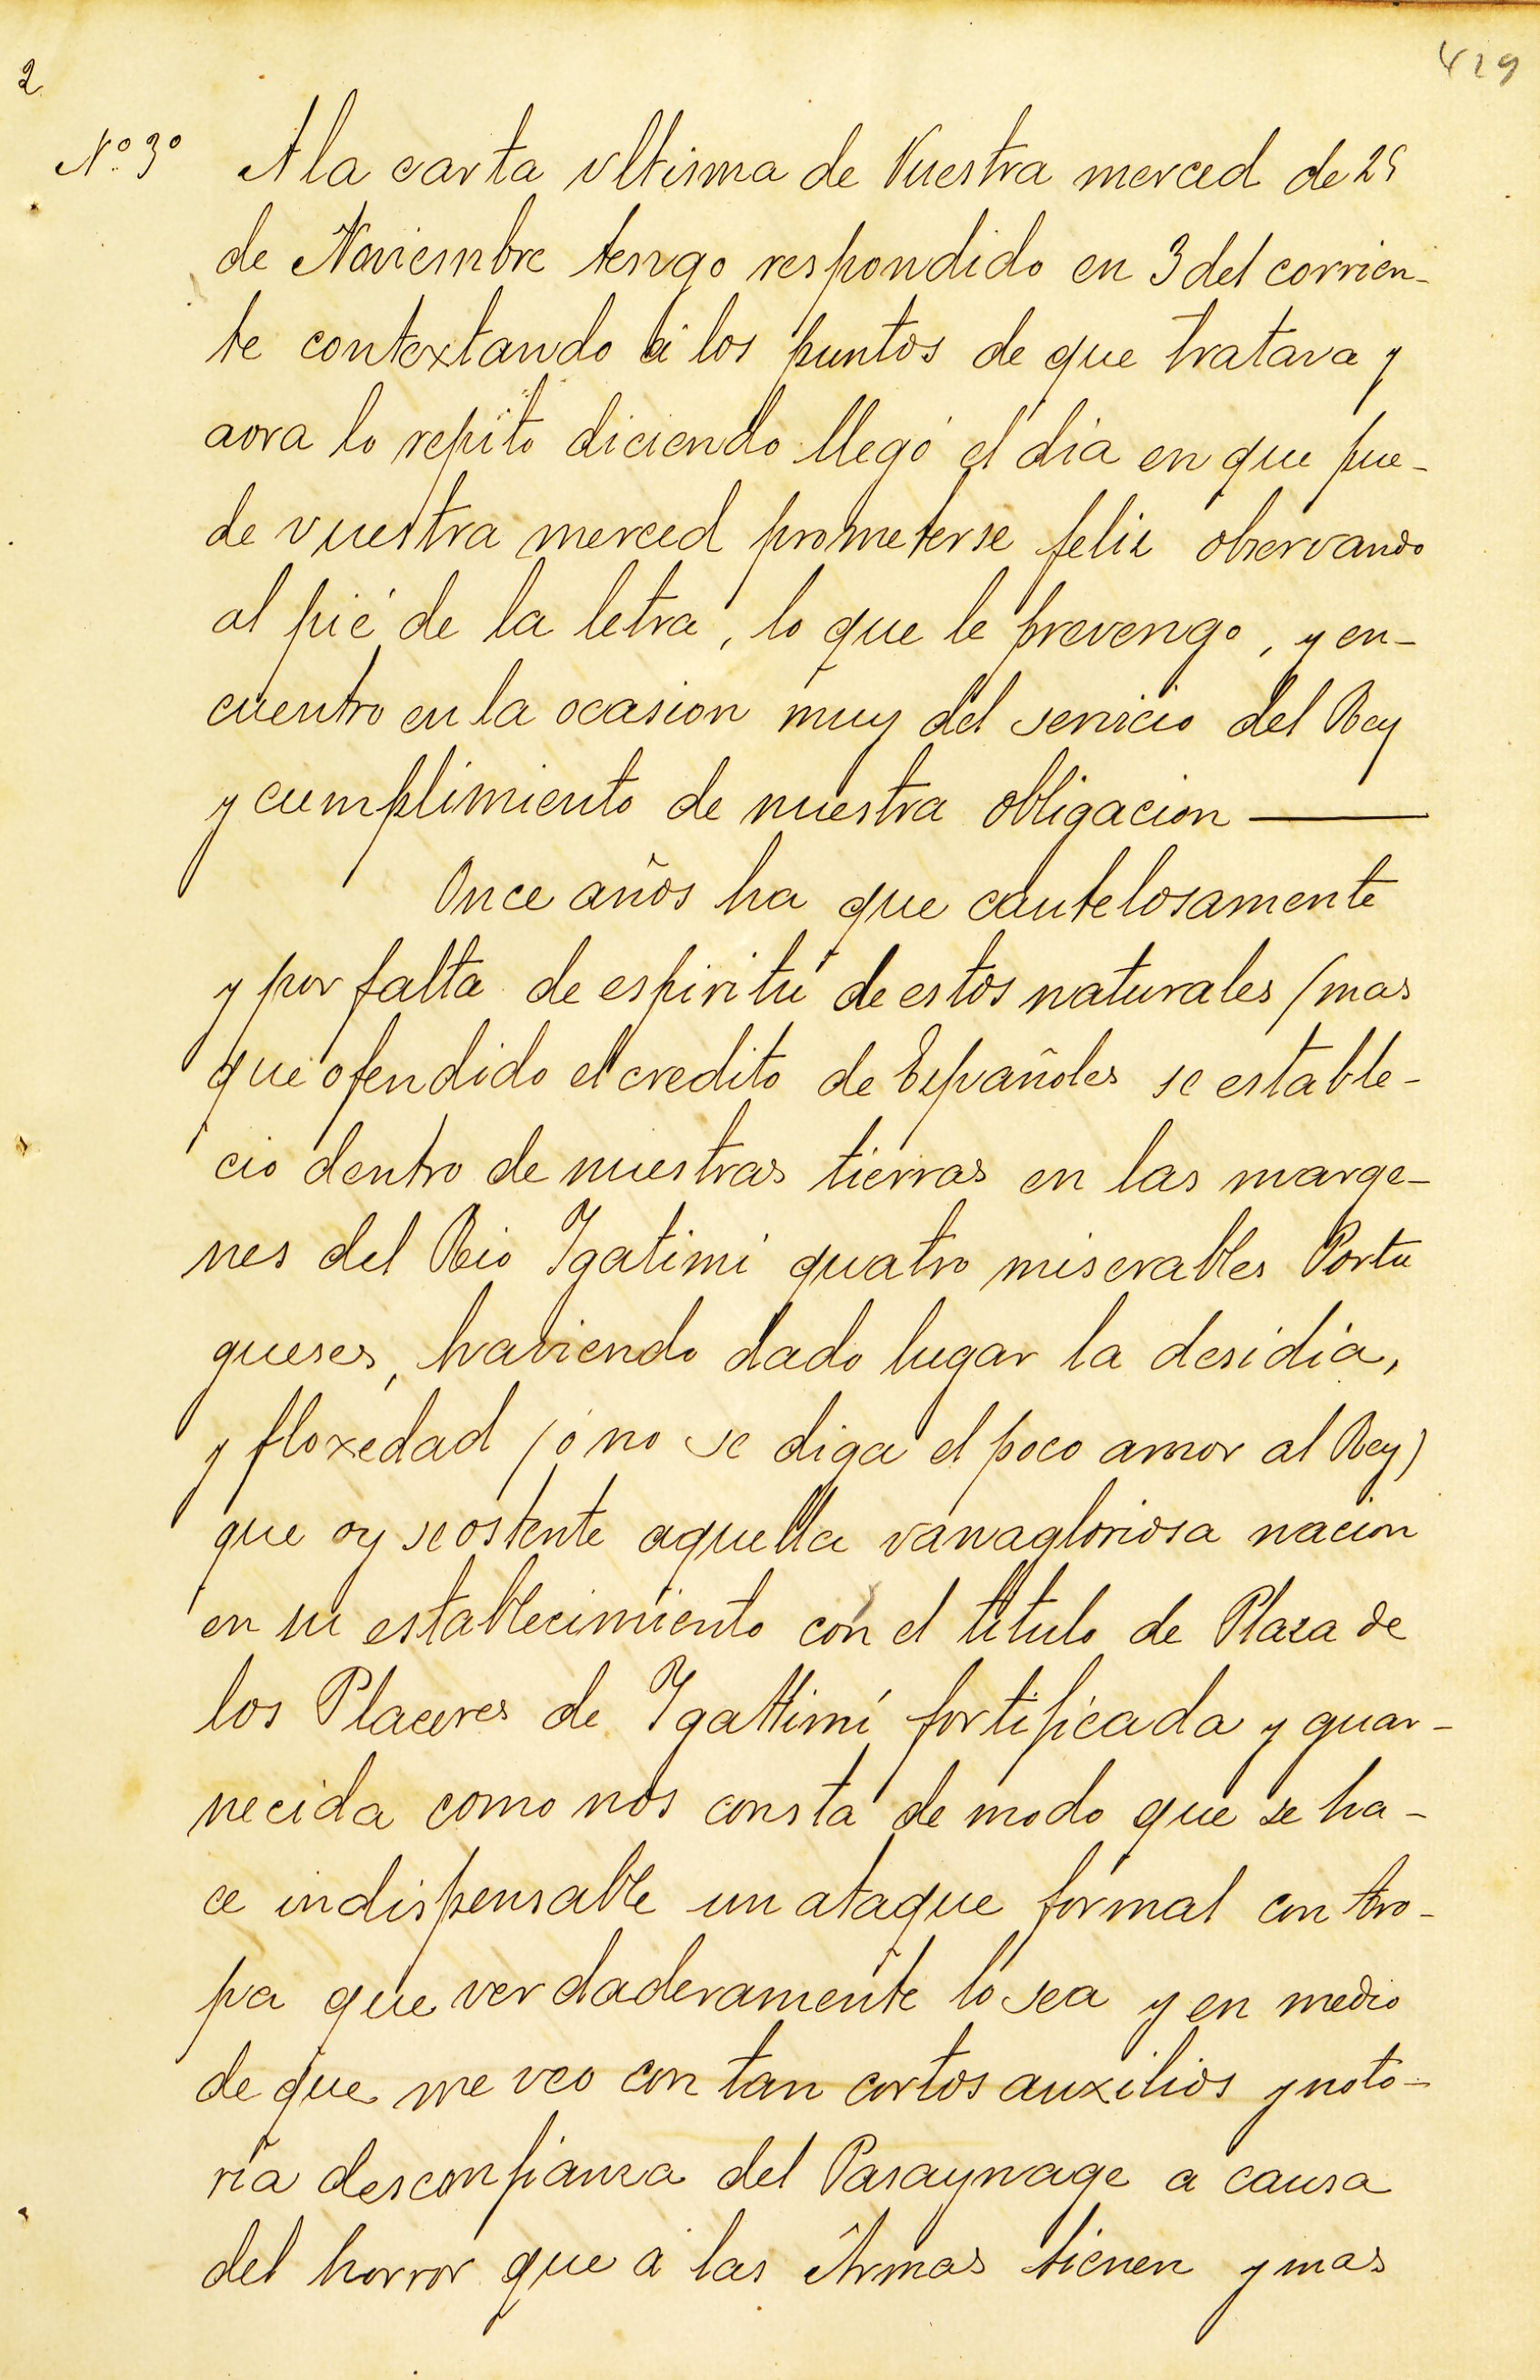 2
429
Nº. 3º
A la carta ultima de Vuestra merced de 25
de Noviembre tengo respondido en 3 del corrien-
te contextando á los puntos de que tratava y
aora lo repito diciendo llegó el dia en que pue-
de vuestra merced prometerse feliz observando
al pié de la letra, lo que le prevengo, y en-
cuentro en la ocasion muy del servicio del Rey
y cumplimiento de nuestra obligacion ———
Once años ha que cautelosamente
y por falta de espiritu de estos naturales (mas
que ofendido el credito de Españoles se estable-
cio dentro de nuestras tierras en las marge-
nes del Rio Ygatimi quatro miserables Portu
gueses, haviendo dado lugar la desidia,
y floxedad (ó no se diga el poco amor al Rey)
que oy se ostente aquella vanagloriosa nacion
en su establecimiento con el titulo de Plaza de
los Placeres de Ygattimí fortificada y guar-
necida como nos consta de modo que se ha-
ce indispensable un ataque formal con tro-
pa que verdaderamente lo sea y en medio
de que me veo con tan cortos auxilios y noto-
ria desconfianza del Pasaynage a causa
del horror que á las Armas tienen y mas